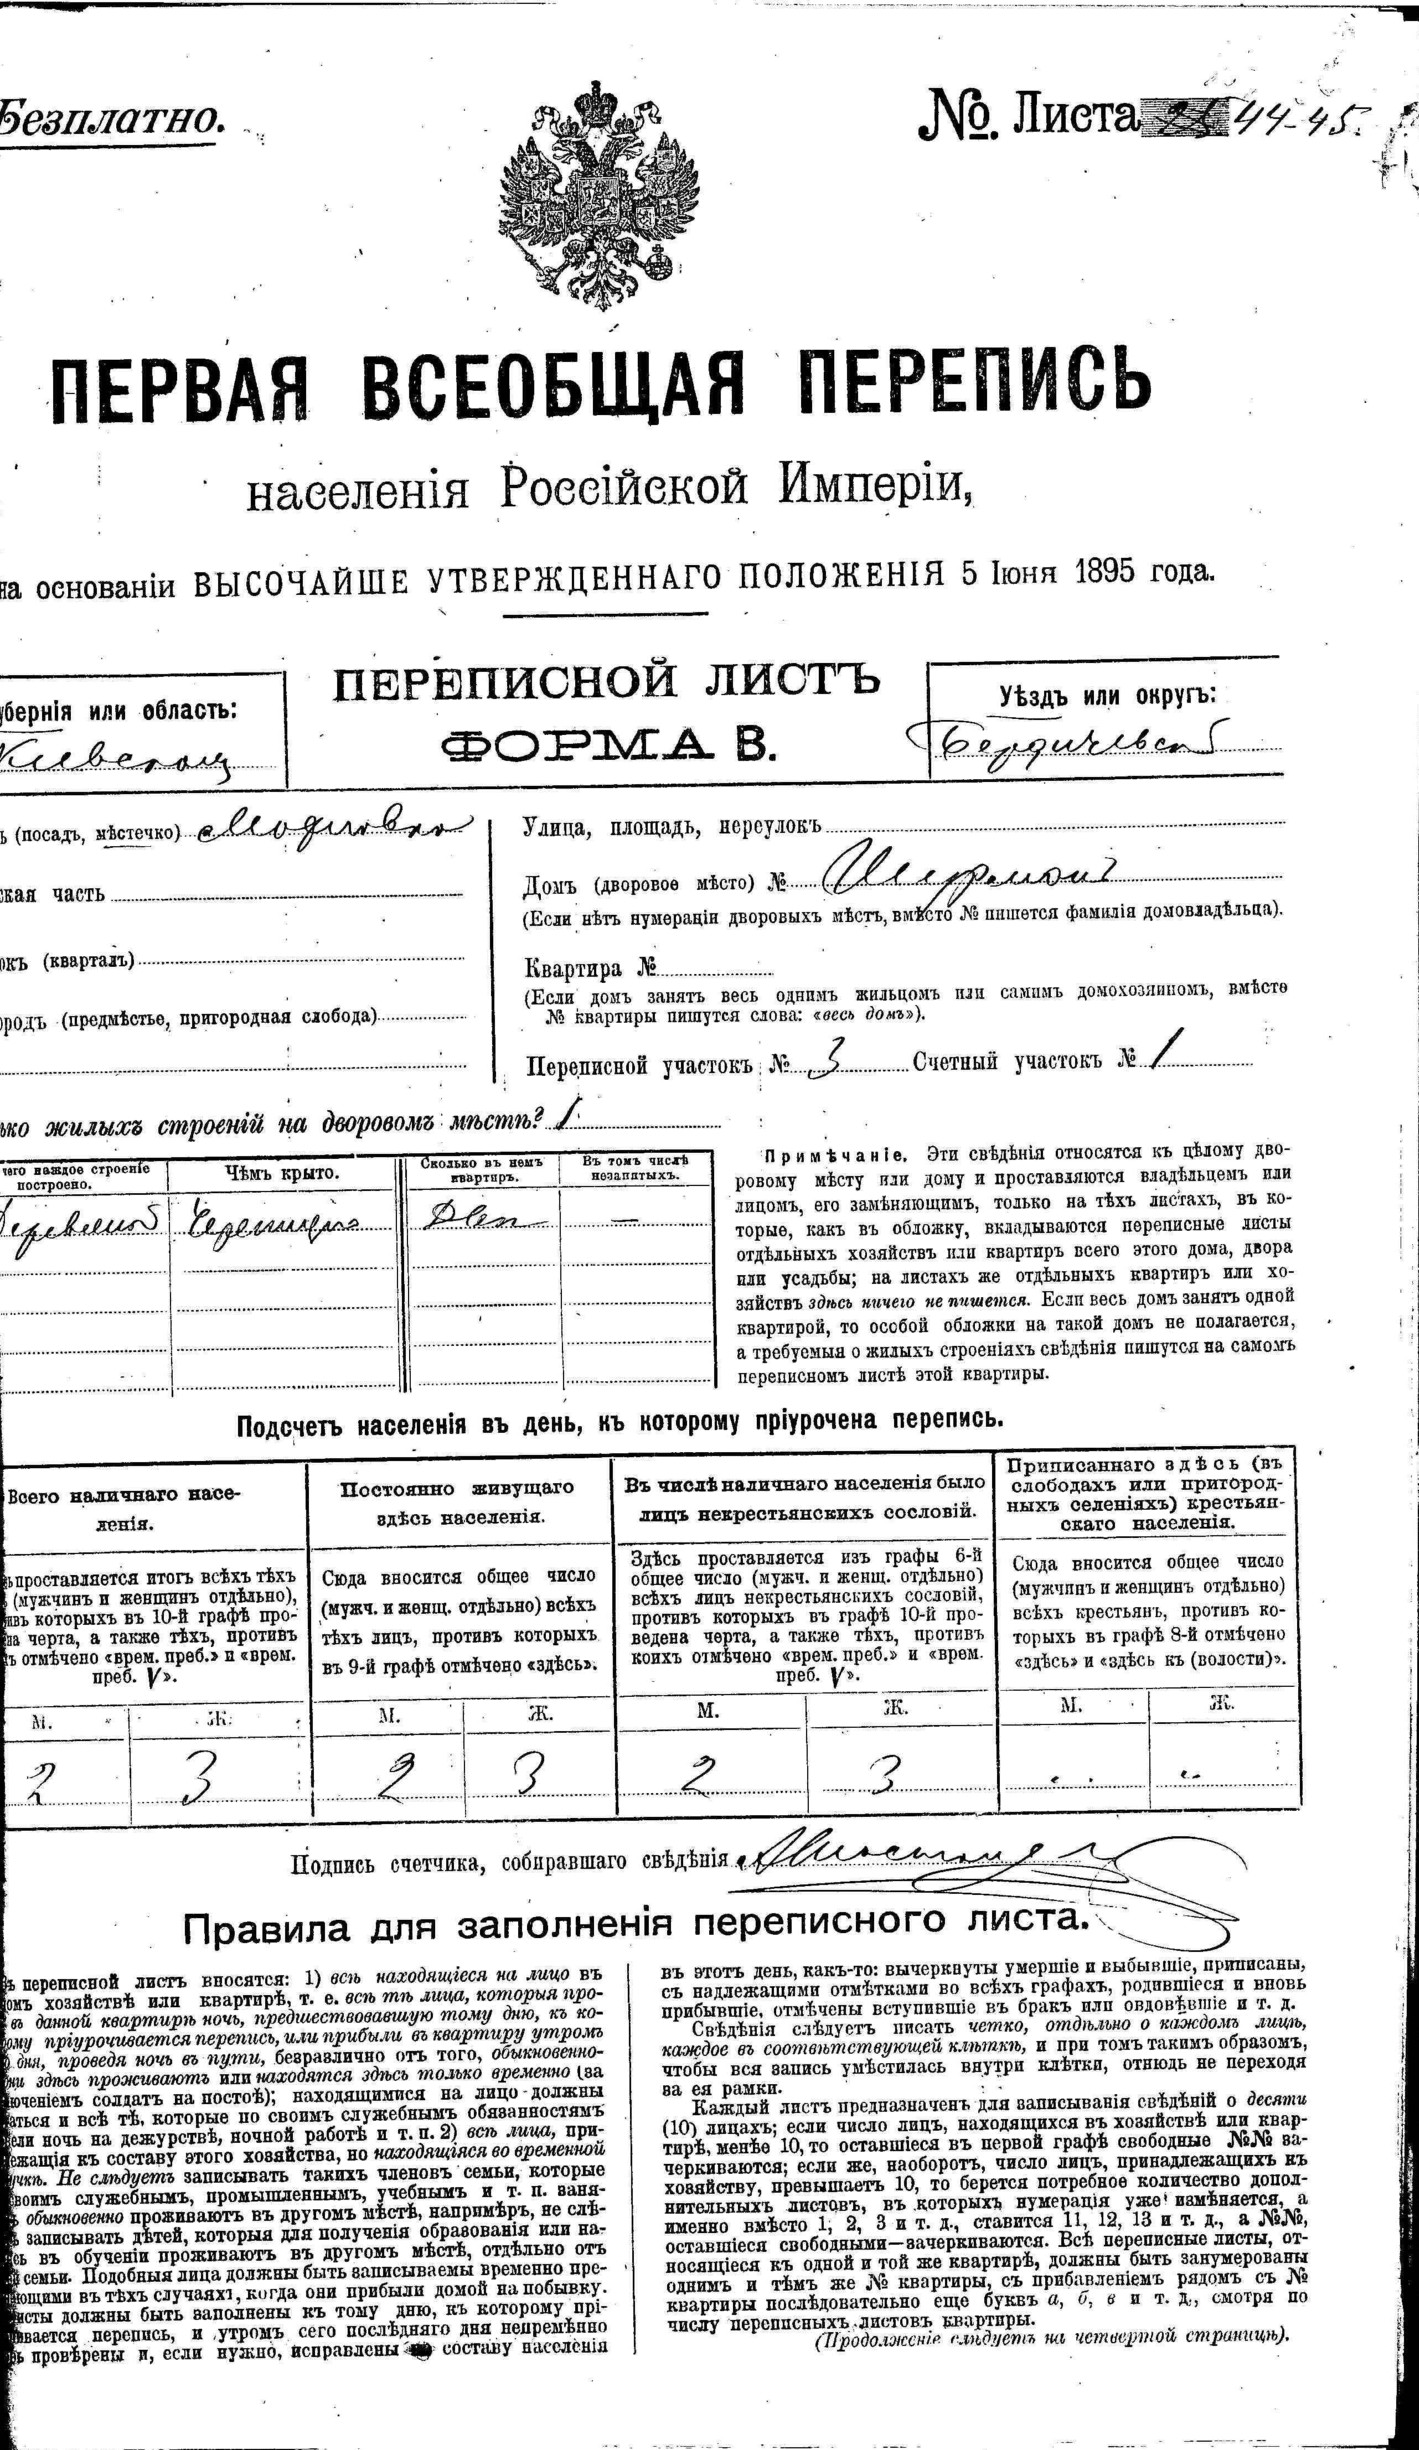 Безплатно.
№. Листа 44-45.
ПЕРВАЯ ВСЕОБЩАЯ ПЕРЕПИСЬ
населенія Россійской Имперіи,
на основаніи ВЫСОЧАЙШЕ УТВЕРЖДЕННАГО ПОЛОЖЕНІЯ 5 Іюня 1895 года.
ПЕРЕПИСНОЙ ЛИСТЪ
ФОРМА В.
убернія или область:
Кіевской
Уѣздъ или округъ:
Бердичевской
ъ (посадъ, мѣстечко)
ская часть
окъ (кварталъ)
ородъ (предмѣстье, пригородная слобода)
Улица, площадь, переулокъ
Домъ (дворовое мѣсто) №
(Если нѣтъ нумераціи дворовыхъ мѣстъ, вмѣсто № пишется фамилія домовладѣльца).
Квартира №
(Если домъ занятъ весь однимъ жильцомъ или самимъ домохозяиномъ, вмѣсто
№ квартиры пишутся слова: «весь домъ»).
Переписной участокъ № 3 Счетный участокъ № 1
ько жилыхъ строеній на дворовомъ мѣстѣ? 1
чего каждое строеніе
построено.
Чѣмъ крыто.
Сколько въ немъ
квартиръ.
Въ томъ числѣ
незанятыхъ.
Двѣ —
Примѣчаніе. Эти свѣдѣнія относятся къ цѣлому дво-
ровому мѣсту или дому и проставляются владѣльцемъ или
лицомъ, его замѣняющимъ, только на тѣхъ листахъ, въ ко-
торые, какъ въ обложку, вкладываются переписные листы
отдѣльныхъ хозяйствъ или квартиръ всего этого дома, двора
или усадьбы; на листахъ же отдѣльныхъ квартиръ или хо-
зяйствъ здѣсь ничего не пишется. Если весь домъ занятъ одной
квартирой, то особой обложки на такой домъ не полагается,
а требуемыя о жилыхъ строеніяхъ свѣдѣнія пишутся на самомъ
переписномъ листѣ этой квартиры.
Подсчетъ населенія въ день, къ которому пріурочена перепись.
Всего наличнаго насе-
ленія.
ь проставляется итогъ всѣхъ тѣхъ
(мужчинъ и женщинъ отдѣльно),
ивъ которыхъ въ 10-й графѣ про-
на черта, а также тѣхъ, противъ
ъ отмѣчено «врем. преб.» и «врем.
преб. V».
М. Ж.
2 3
Постоянно живущаго
здѣсь населенія.
Сюда вносится общее число
(мужч. и женщ. отдѣльно) всѣхъ
тѣхъ лицъ, противъ которыхъ
въ 9-й графѣ отмѣчено «здѣсь».
М. Ж.
2 3
Въ числѣ наличнаго населенія было
лицъ некрестьянскихъ сословій.
Здѣсь проставляется изъ графы 6-й
общее число (мужч. и женщ. отдѣльно)
всѣхъ лицъ некрестьянскихъ сословій,
противъ которыхъ въ графѣ 10-й про-
ведена черта, а также тѣхъ, противъ
коихъ отмѣчено «врем. преб.» и «врем.
преб. V».
М. Ж.
2 3
Приписаннаго здѣсь (въ
слободахъ или пригород-
ныхъ селеніяхъ) крестьян-
скаго населенія.
Сюда вносится общее число
(мужчинъ и женщинъ отдѣльно)
всѣхъ крестьянъ, противъ ко-
торыхъ въ графѣ 8-й отмѣчено
«здѣсь» и «здѣсь къ (волости)».
М. Ж.
Подпись счетчика, собиравшаго свѣдѣнія
Правила для заполненія переписного листа.
ъ переписной листъ вносятся: 1) всѣ находящіеся на лицо въ
омъ хозяйствѣ или квартирѣ, т. е. всѣ тѣ лица, которыя про-
въ данной квартирѣ ночь, предшествовавшую тому дню, къ ко-
ому пріурочивается перепись, или прибыли въ квартиру утромъ
дня, проведя ночь въ пути, безразлично отъ того, обыкновенно-
ни здѣсь проживаютъ или находятся здѣсь только временно (за
юченіемъ солдатъ на постоѣ); находящимися на лицо должны
аться и всѣ тѣ, которые по своимъ служебнымъ обязанностямъ
ели ночь на дежурствѣ, ночной работѣ и т. п. 2) всѣ лица, при-
ежащія къ составу этого хозяйства, но находящіяся во временной
учкѣ. Не слѣдуетъ записывать такихъ членовъ семьи, которые
воимъ служебнымъ, промышленнымъ, учебнымъ и т. п. заня-
обыкновенно проживаютъ въ другомъ мѣстѣ, напримѣръ, не слѣ-
ъ записывать дѣтей, которыя для полученія образованія или на-
сь въ обученіи проживаютъ въ другомъ мѣстѣ, отдѣльно отъ
семьи. Подобныя лица должны быть записываемы временно пре-
ющими въ тѣхъ случаяхъ, когда они прибыли домой на побывку.
исты должны быть заполнены къ тому дню, къ которому прі-
ивается перепись, и утромъ сего послѣдняго дня непремѣнно
ь провѣрены и, если нужно, исправлены составу населенія
въ этотъ день, какъ-то: вычеркнуты умершіе и выбывшіе, приписаны,
съ надлежащими отмѣтками во всѣхъ графахъ, родившіеся и вновь
прибывшіе, отмѣчены вступившіе въ бракъ или овдовѣвшіе и т. д.
Свѣдѣнія слѣдуетъ писать четко, отдѣльно о каждомъ лицѣ,
каждое въ соотвѣтствующей клѣткѣ, и при томъ такимъ образомъ,
чтобы вся запись умѣстилась внутри клѣтки, отнюдь не переходя
за ея рамки.
Каждый листъ предназначенъ для записыванія свѣдѣній о десяти
(10) лицахъ; если число лицъ, находящихся въ хозяйствѣ или квар-
тирѣ, менѣе 10, то оставшіеся въ первой графѣ свободные №№ за-
черкиваются; если же, наоборотъ, число лицъ, принадлежащихъ къ
хозяйству, превышаетъ 10, то берется потребное количество допол-
нительныхъ листовъ, въ которыхъ нумерація уже измѣняется, а
именно вмѣсто 1, 2, 3 и т. д., ставится 11, 12, 13 и т. д., а №№,
оставшіеся свободными—зачеркиваются. Всѣ переписные листы, от-
носящіеся къ одной и той же квартирѣ, должны быть занумерованы
однимъ и тѣмъ же № квартиры, съ прибавленіемъ рядомъ съ №
квартиры послѣдовательно еще буквъ а, б, в и т. д., смотря по
числу переписныхъ листовъ квартиры.
(Продолженіе слѣдуетъ на четвертой страницѣ).